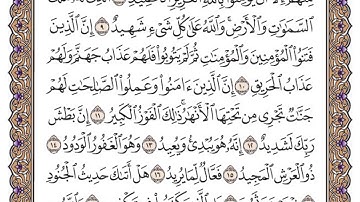 السَّمَٰوَٰتِ وَالْأَرْضِ ۚ وَاللَّهُ عَلَىٰ كُلِّ شَىْءٍ شَهِيدٌ ٩ إِنَّ الَّذِينَ
فَتَنُوا الْمُؤْمِنِينَ وَالْمُؤْمِنَٰتِ ثُمَّ لَمْ يَتُوبُوا فَلَهُمْ عَذَابُ جَهَنَّمَ وَلَهُمْ
عَذَابُ الْحَرِيقِ ١٠ إِنَّ الَّذِينَ ءَامَنُوا وَعَمِلُوا الصَّٰلِحَٰتِ لَهُمْ
جَنَّٰتٌ تَجْرِى مِن تَحْتِهَا الْأَنْهَٰرُ ۚ ذَٰلِكَ الْفَوْزُ الْكَبِيرُ ١١ إِنَّ بَطْشَ
رَبِّكَ لَشَدِيدٌ ١٢ إِنَّهُۥ هُوَ يُبْدِئُ وَيُعِيدُ ١٣ وَهُوَ الْغَفُورُ الْوَدُودُ ١٤
ذُو الْعَرْشِ الْمَجِيدُ ١٥ فَعَّالٌ لِّمَا يُرِيدُ ١٦ هَلْ أَتَىٰكَ حَدِيثُ الْجُنُودِ